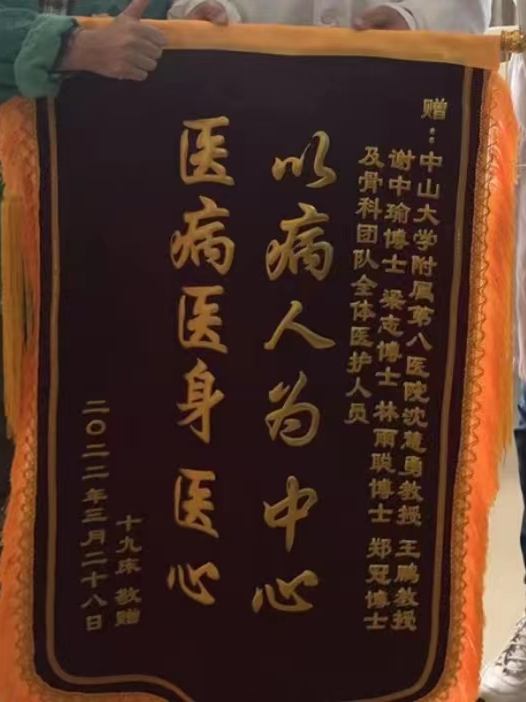 赠：中山大学附属第八医院沈慧勇教授 王鹏教授
谢中瑜博士 梁志博士 林雨聪博士 郑冠博士
及骨科团队全体医护人员
以病人为中心
医病医身医心
十九床敬赠
二〇二二年三月二十八日